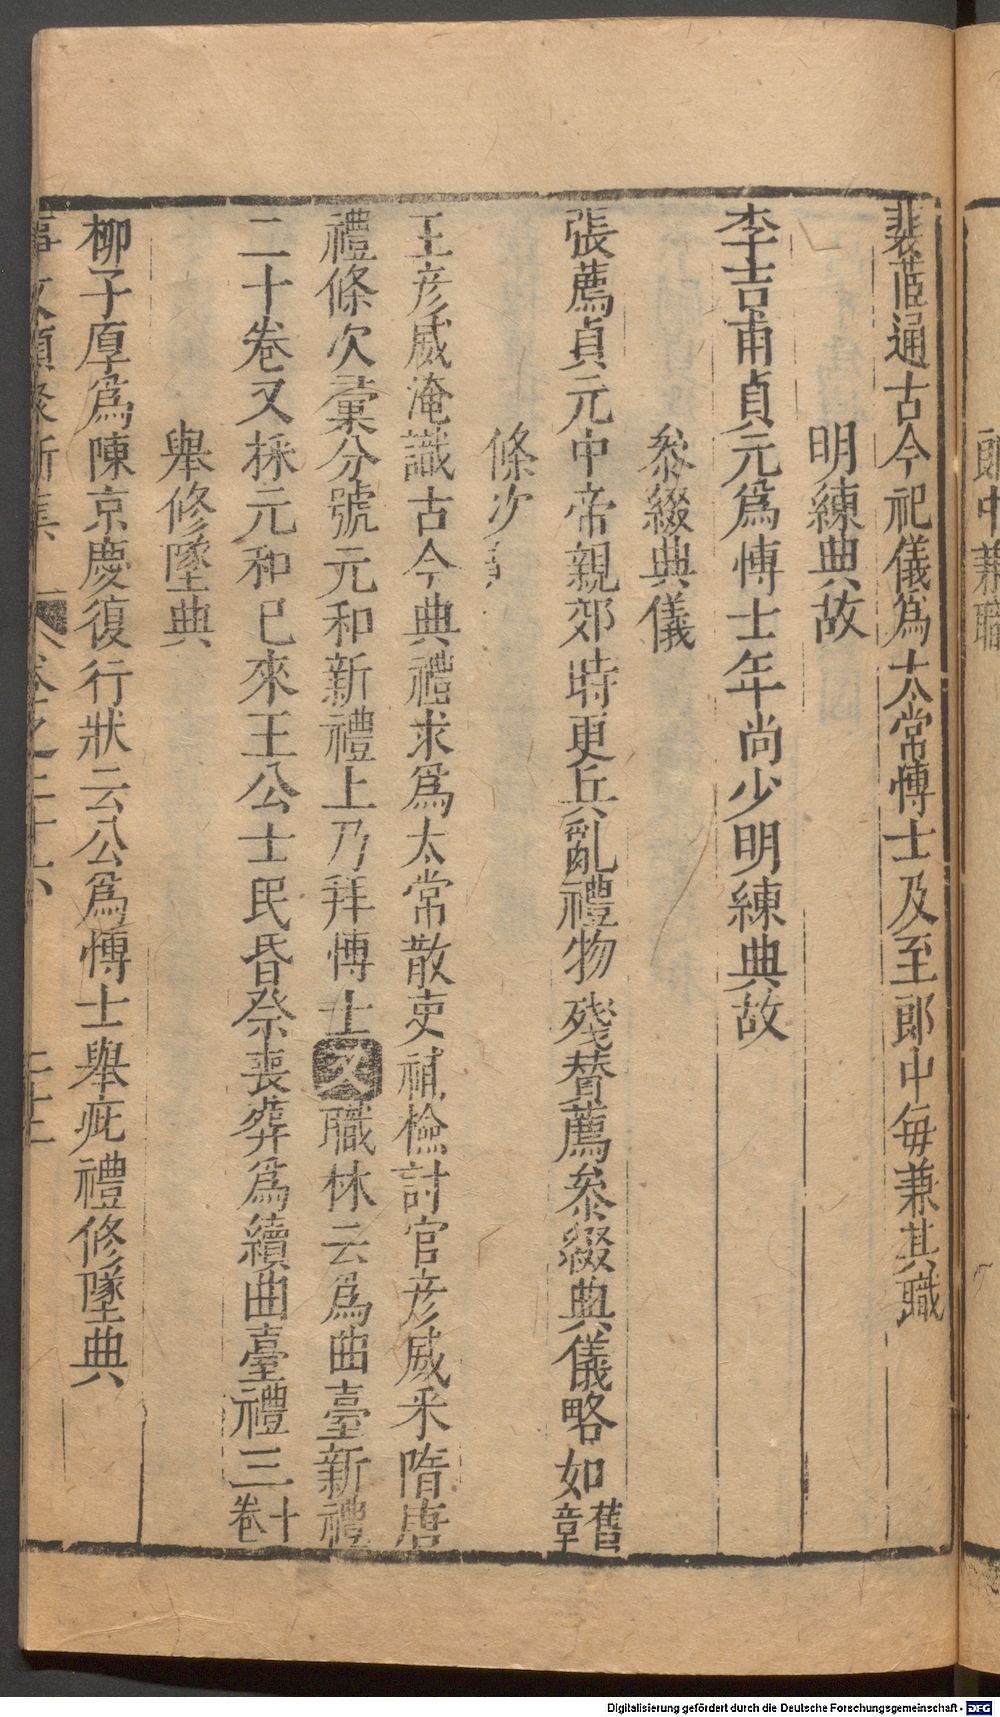 郎中兼職
裴茝通古今祀儀爲太常博士及至郎中每兼其職
明練典故
李吉甫貞元爲博士年尚少明練典故
叅綴典儀
張薦貞元中帝親郊時更兵亂禮物殘替薦叅綴典儀略如舊章
條次
王彦威淹識古今典禮求爲太常散吏補檢討官彦威采隋唐
禮條次彙分號元和新禮上乃拜博士又職林云爲曲臺新禮
二十卷又採元和已來王公士民昏祭喪葬爲續曲臺禮三十卷
舉修墜典
柳子厚爲陳京慶復行狀云公爲博士舉疵禮修墜典
事文類聚新集 卷之二十六
Digitalisierung gefördert durch die Deutsche Forschungsgemeinschaft - DFG